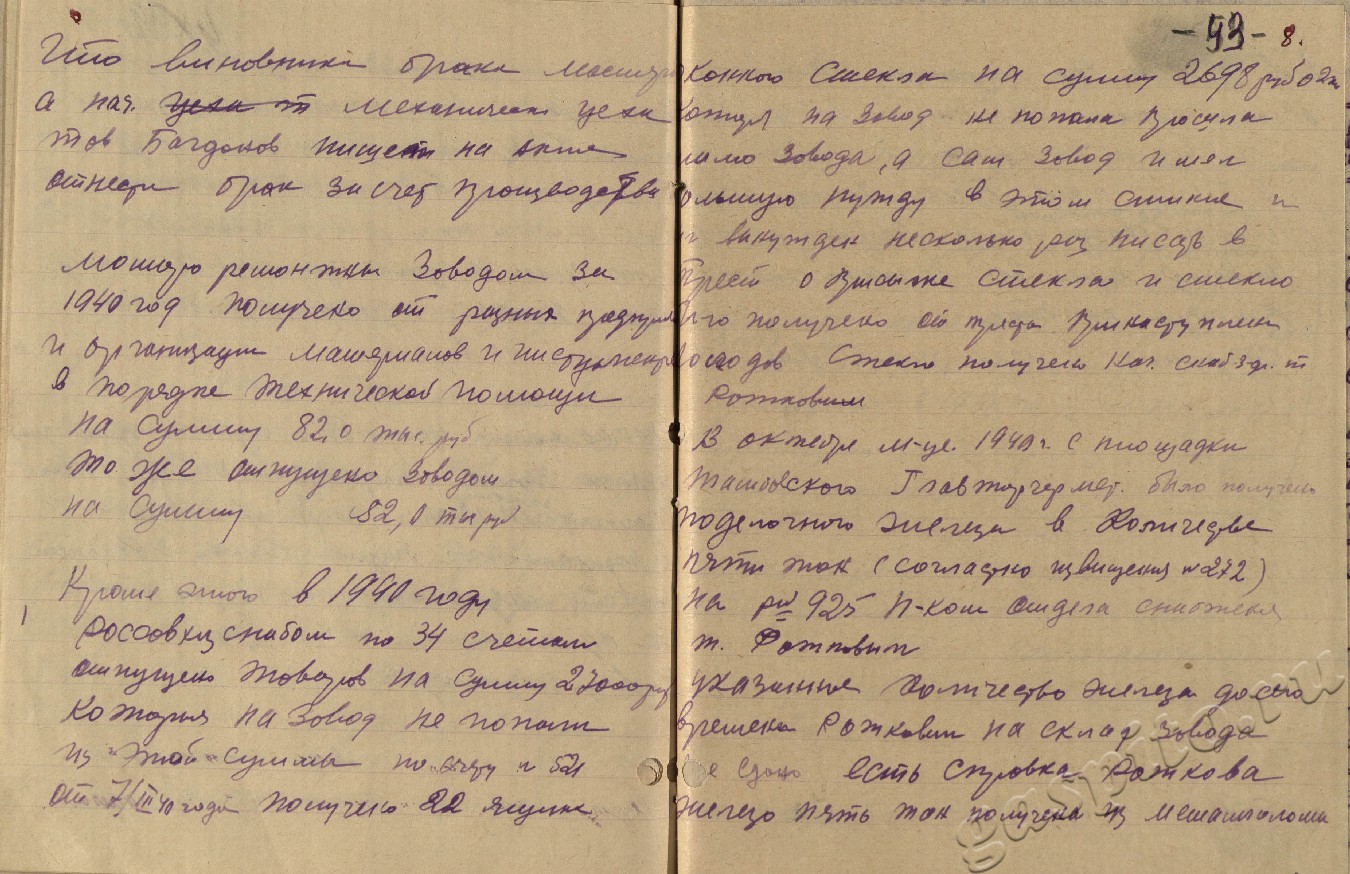 Что виновники брака мастера
а нач. цеха т механически цеха
тов Багданов пишет на акте
отнести брак за счет производства
1940 год получено от разных
и организации материалов и инструмента
в порядке технической помощи
на сумму 82,0 тыс. руб
то же отпущено Заводом
на сумму 82,0 тыс руб
Кроме этого в 1940 году
по 34 счетам
отпущено товаров на сумму 27000 руб
которыя на завод не попали
из этой суммы по счету
от 7/III 40 года получено 22 ящика
-43- 8.
конного стекла на сумму 2698 руб 02 к
на завод не попала
мимо завода, а сам завод имел
ольшую нужду в этом стекле и
вынужден несколько раз писать в
трест о высылке стекла и стекло
получено от треста
Стекло получено нач. снабж. т
Рожковым
В октябре м-це. 1940 г. с площадки
Главторчермет. было получено
поделочного железа в количестве
пяти тон (согласно извищения №272)
на 925 н-ком отдела снабжения
т. Рожковым
указанное количество железа до сего
времени Рожковым на склад завода
не сдано есть справка Рожкова
железо пять тон получена из
gaspito.ru